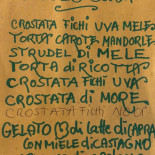 CROSTATA FICHI UVA MELE
TORTA CAROTE MANDORLE
STRUDEL DI MELE
TORTA DI RICOTTA
CROSTATA FICHI UVA
CROSTATA DI MORE
CROSTATA FICHI NOCI
GELATO DI LATTE DI CAPRA
CON MIELE DI CASTAGNO